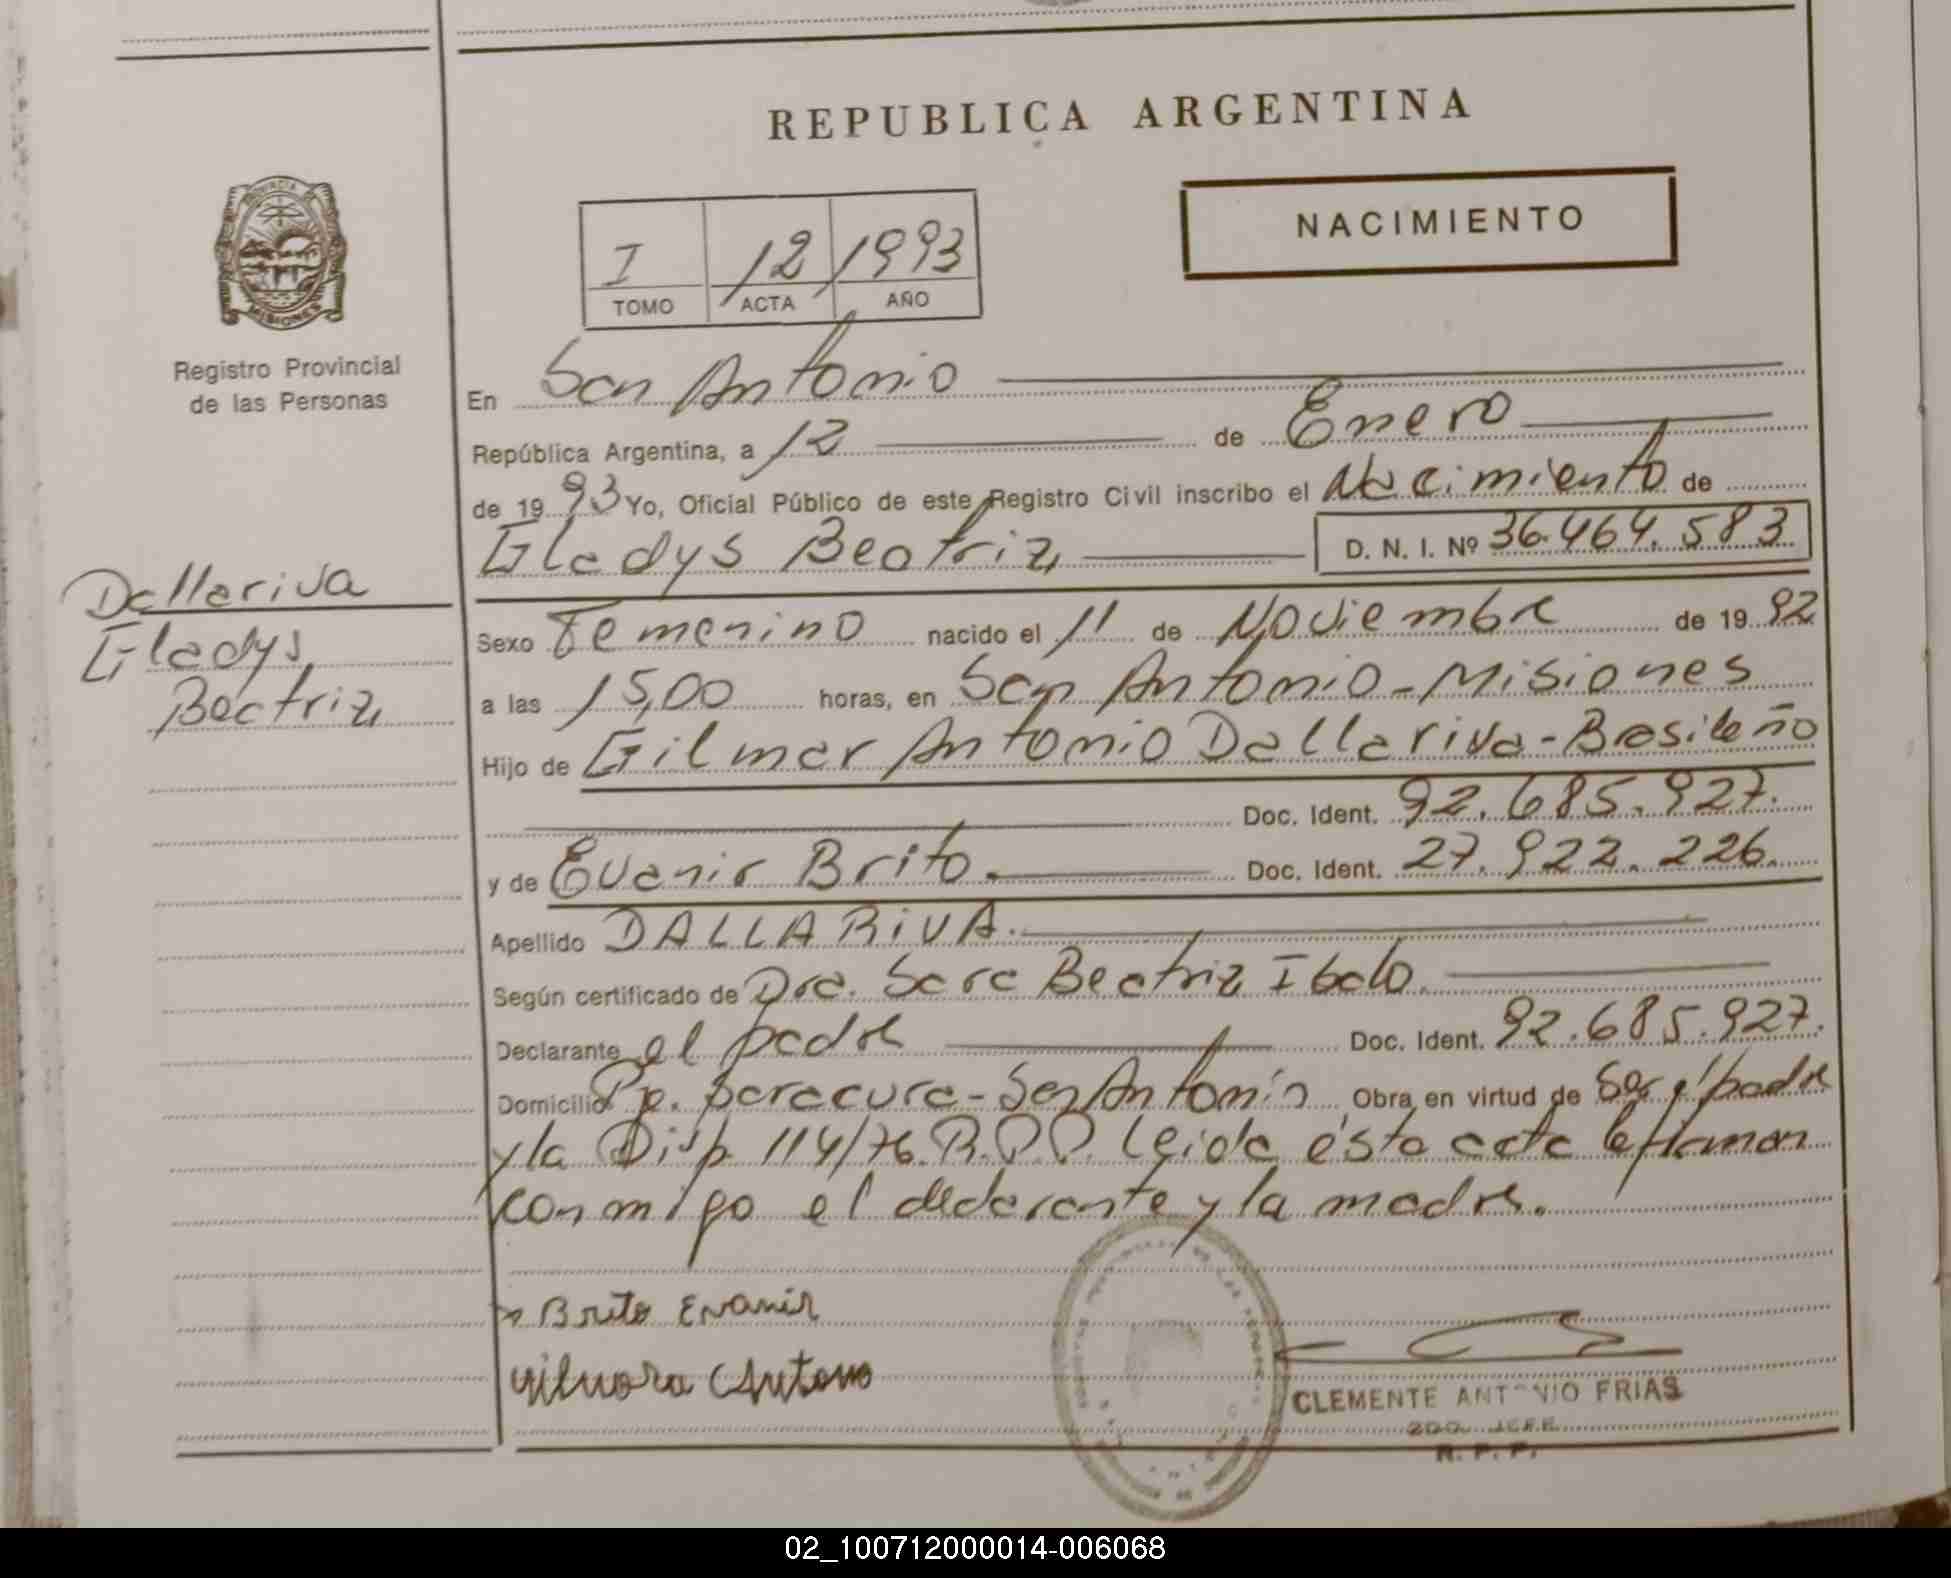 REPUBLICA ARGENTINA
NACIMIENTO
I 12 1993
TOMO ACTA AÑO
PROVINCIA
MISIONES
Registro Provincial
de las Personas
Dallariva
Gladys
Beatriz
En San Antonio
República Argentina, a 12 de Enero
de 1993 Yo, Oficial Público de este Registro Civil inscribo el Nacimiento de
Gladys Beatriz D. N. I. Nº 36.464.583
Sexo Femenino nacido el 11 de Noviembre de 1992
a las 15,00 horas, en San Antonio - Misiones
Hijo de Gilmar Antonio Dallariva - Brasileño
Doc. Ident. 92.685.927.
y de Evanir Brito. Doc. Ident. 27.922.226.
Apellido DALLARIVA.
Según certificado de Dra. Sara Beatriz Ibalo.
Declarante el padre Doc. Ident. 92.685.927.
Domicilio Pje. Saracura - San Antonio Obra en virtud de Ser el padre
y la Disp. 114/76. R.P.P. Leida ésta acta la firman
conmigo el declarante y la madre.
x Brito Evanir
Antonio
CLEMENTE ANTONIO FRIAS
2DO. JEFE
R. P. P.
02_100712000014-006068